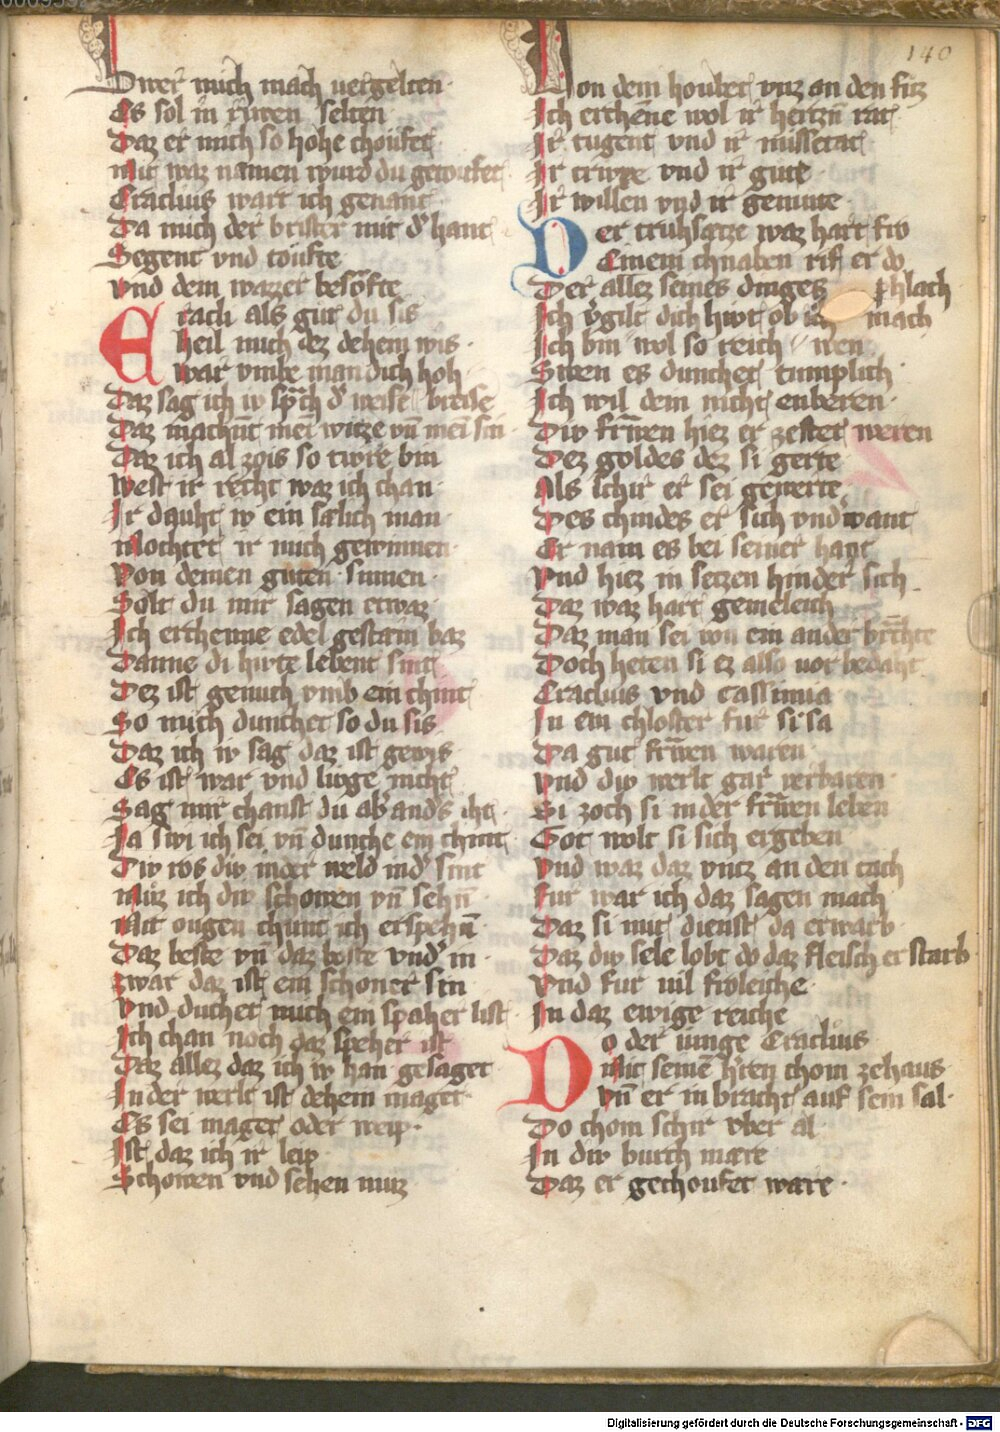 140
Swer mich mach uergelten·
Es sol in rywen selten
Daz er mich so hohe choufet
Mit waz namen wurd du getoufet·
Eraclius wart ich genant·
Da mich der brister mit d͛ hant
Segent vnd toufte
Vnd dem wazzer besofte
Eracli als gut du sis
heil mich dez dehein wis·
war vmbe man dich hoh
Daz sag ich iv sprach d͛ weise
Daz machūt mei witze vn̄ mei sin·
Daz ich al zois so tivre bin
West ir recht waz ich chan·
Ir dauht iv ein sælich man·
Mochtet ir mich gewinnen·
Von deinen guten sinnen·
Solt du mir sagen etwaz
Ich erchenne edel gestain baz
Danne di hivte lebent sint
Dez ist genuch vmb ein chint
So mich dunchet so du sis
Daz ich iv sag daz ist gewis
Es ist war vnd livge nicht
Sag mir chanst du ab͛ and͛s iht·
Ja swi ich sei vn̄ dunche ein chint·
Div ros div in der weld ind͛ sint
Muz ich div schowen vn̄ sehn̄
Mit ougen chunt ich erspehn̄
Daz beste vn̄ daz boste vnd͛ in·
zwar daz ist ein schoner sin
Vnd duchet mich ein spaher list·
Ich chan noch daz speher ist
Daz allez daz ich iv han gesaget·
In der werlt ist dehein maget·
Es sei maget oder weip·
Ist daz ich ir leip·
Schowen vnd sehen muz
Von dem houbet vnz an den fuz
Ich erchēne wol ir hertzn̄ rat·
Ir tugent vnd ir missetat
Ir trivwe vnd ir gute
Ir willen vnd ir gemute·
Der truhsætze waz hart fro
Einem chnaben rif er do
Der allez seines dinges phlach
Ich v͛gilt dich hivt ob ich mach
Ich bin wol so reich wen
Swen es dunchet tumplich·
Ich wil dem nicht enberen·
Div frawen hiez er zestet weren
Dez goldes dez si gerte·
Als schir er sei gewerte
Des chindes er sich vnd͛want
Er nam es bei seiner hant
Vnd hiez in setzen hinder sich
Daz waz hart gemeleich
Daz man sei von ein ander brahte
Doch heten si ez also vor bedaht
Eraclius vnd Cassinia
In ein chloster fur si sa
Da gut frawen waren·
Vnd div werlt gar verbaren·
Si zoch si in der frawen leben
Got wolt si sich ergeben·
Vnd waz daz vntz an den tach
Fur war ich daz sagen mach
Daz si mit dienst da erwarb·
Daz div sele lobt do daz fleisch erstarb·
Vnd fur vil froleiche·
In daz ewige reiche
Do der iunge Eraclius
Mit seinē h͛ren chom zehaus
Vn̄ er in bracht auf sein sal·
Do chom schir vber al·
In div burch mære
Daz er gechoufet ware·
Digitalisierung gefördert durch die Deutsche Forschungsgemeinschaft - DFG